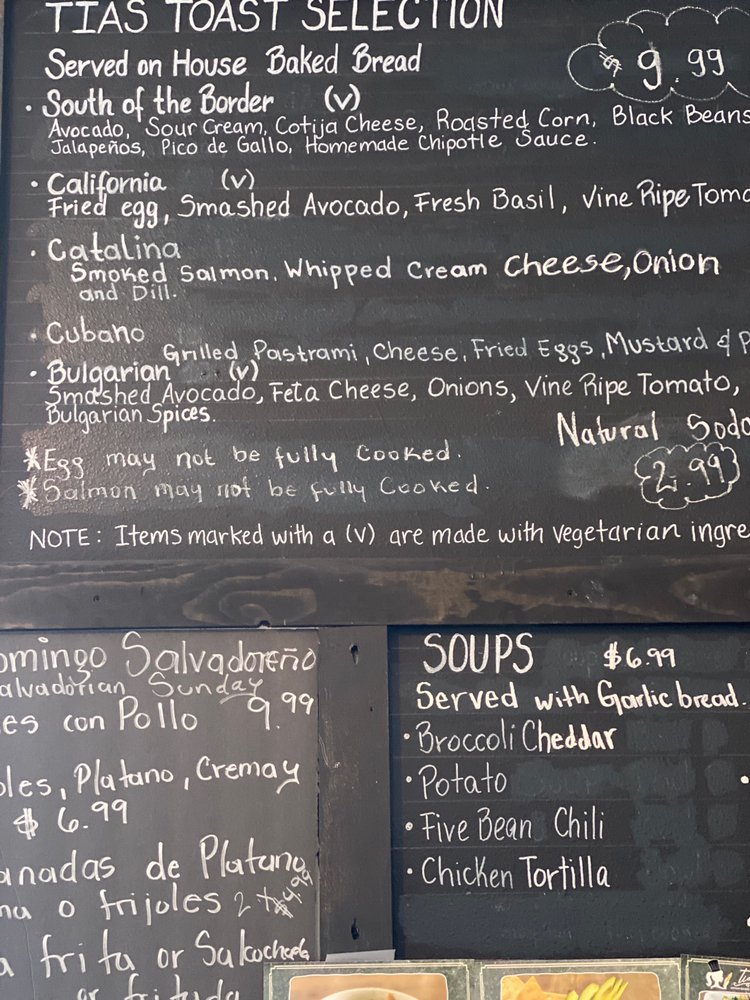 TIAS TOAST SELECTION
Served on House Baked Bread
$9.99
• South of the Border (v)
Avocado, Sour Cream, Cotija Cheese, Roasted Corn, Black Beans
Jalapeños, Pico de Gallo, Homemade Chipotle Sauce.
• California (v)
Fried egg, Smashed Avocado, Fresh Basil, Vine Ripe Toma
• Catalina
Smoked Salmon, Whipped Cream Cheese, Onion
and Dill.
• Cubano
Grilled Pastrami, Cheese, Fried Eggs, Mustard & P
• Bulgarian (v)
Smashed Avocado, Feta Cheese, Onions, Vine Ripe Tomato,
Bulgarian Spices.
Natural Soda
2.99
*Egg may not be fully Cooked.
*Salmon may not be fully Cooked.
NOTE: Items marked with a (v) are made with vegetarian ingre
omingo Salvadoreño
alvadorian Sunday
es con Pollo 9.99
oles, Platano, Crema y
$ 6.99
anadas de Platano
na o frijoles 2 x $4.99
a frita or Sakocheda
or fritada
SOUPS $6.99
Served with Garlic bread.
• Broccoli Cheddar
• Potato
• Five Bean Chili
• Chicken Tortilla